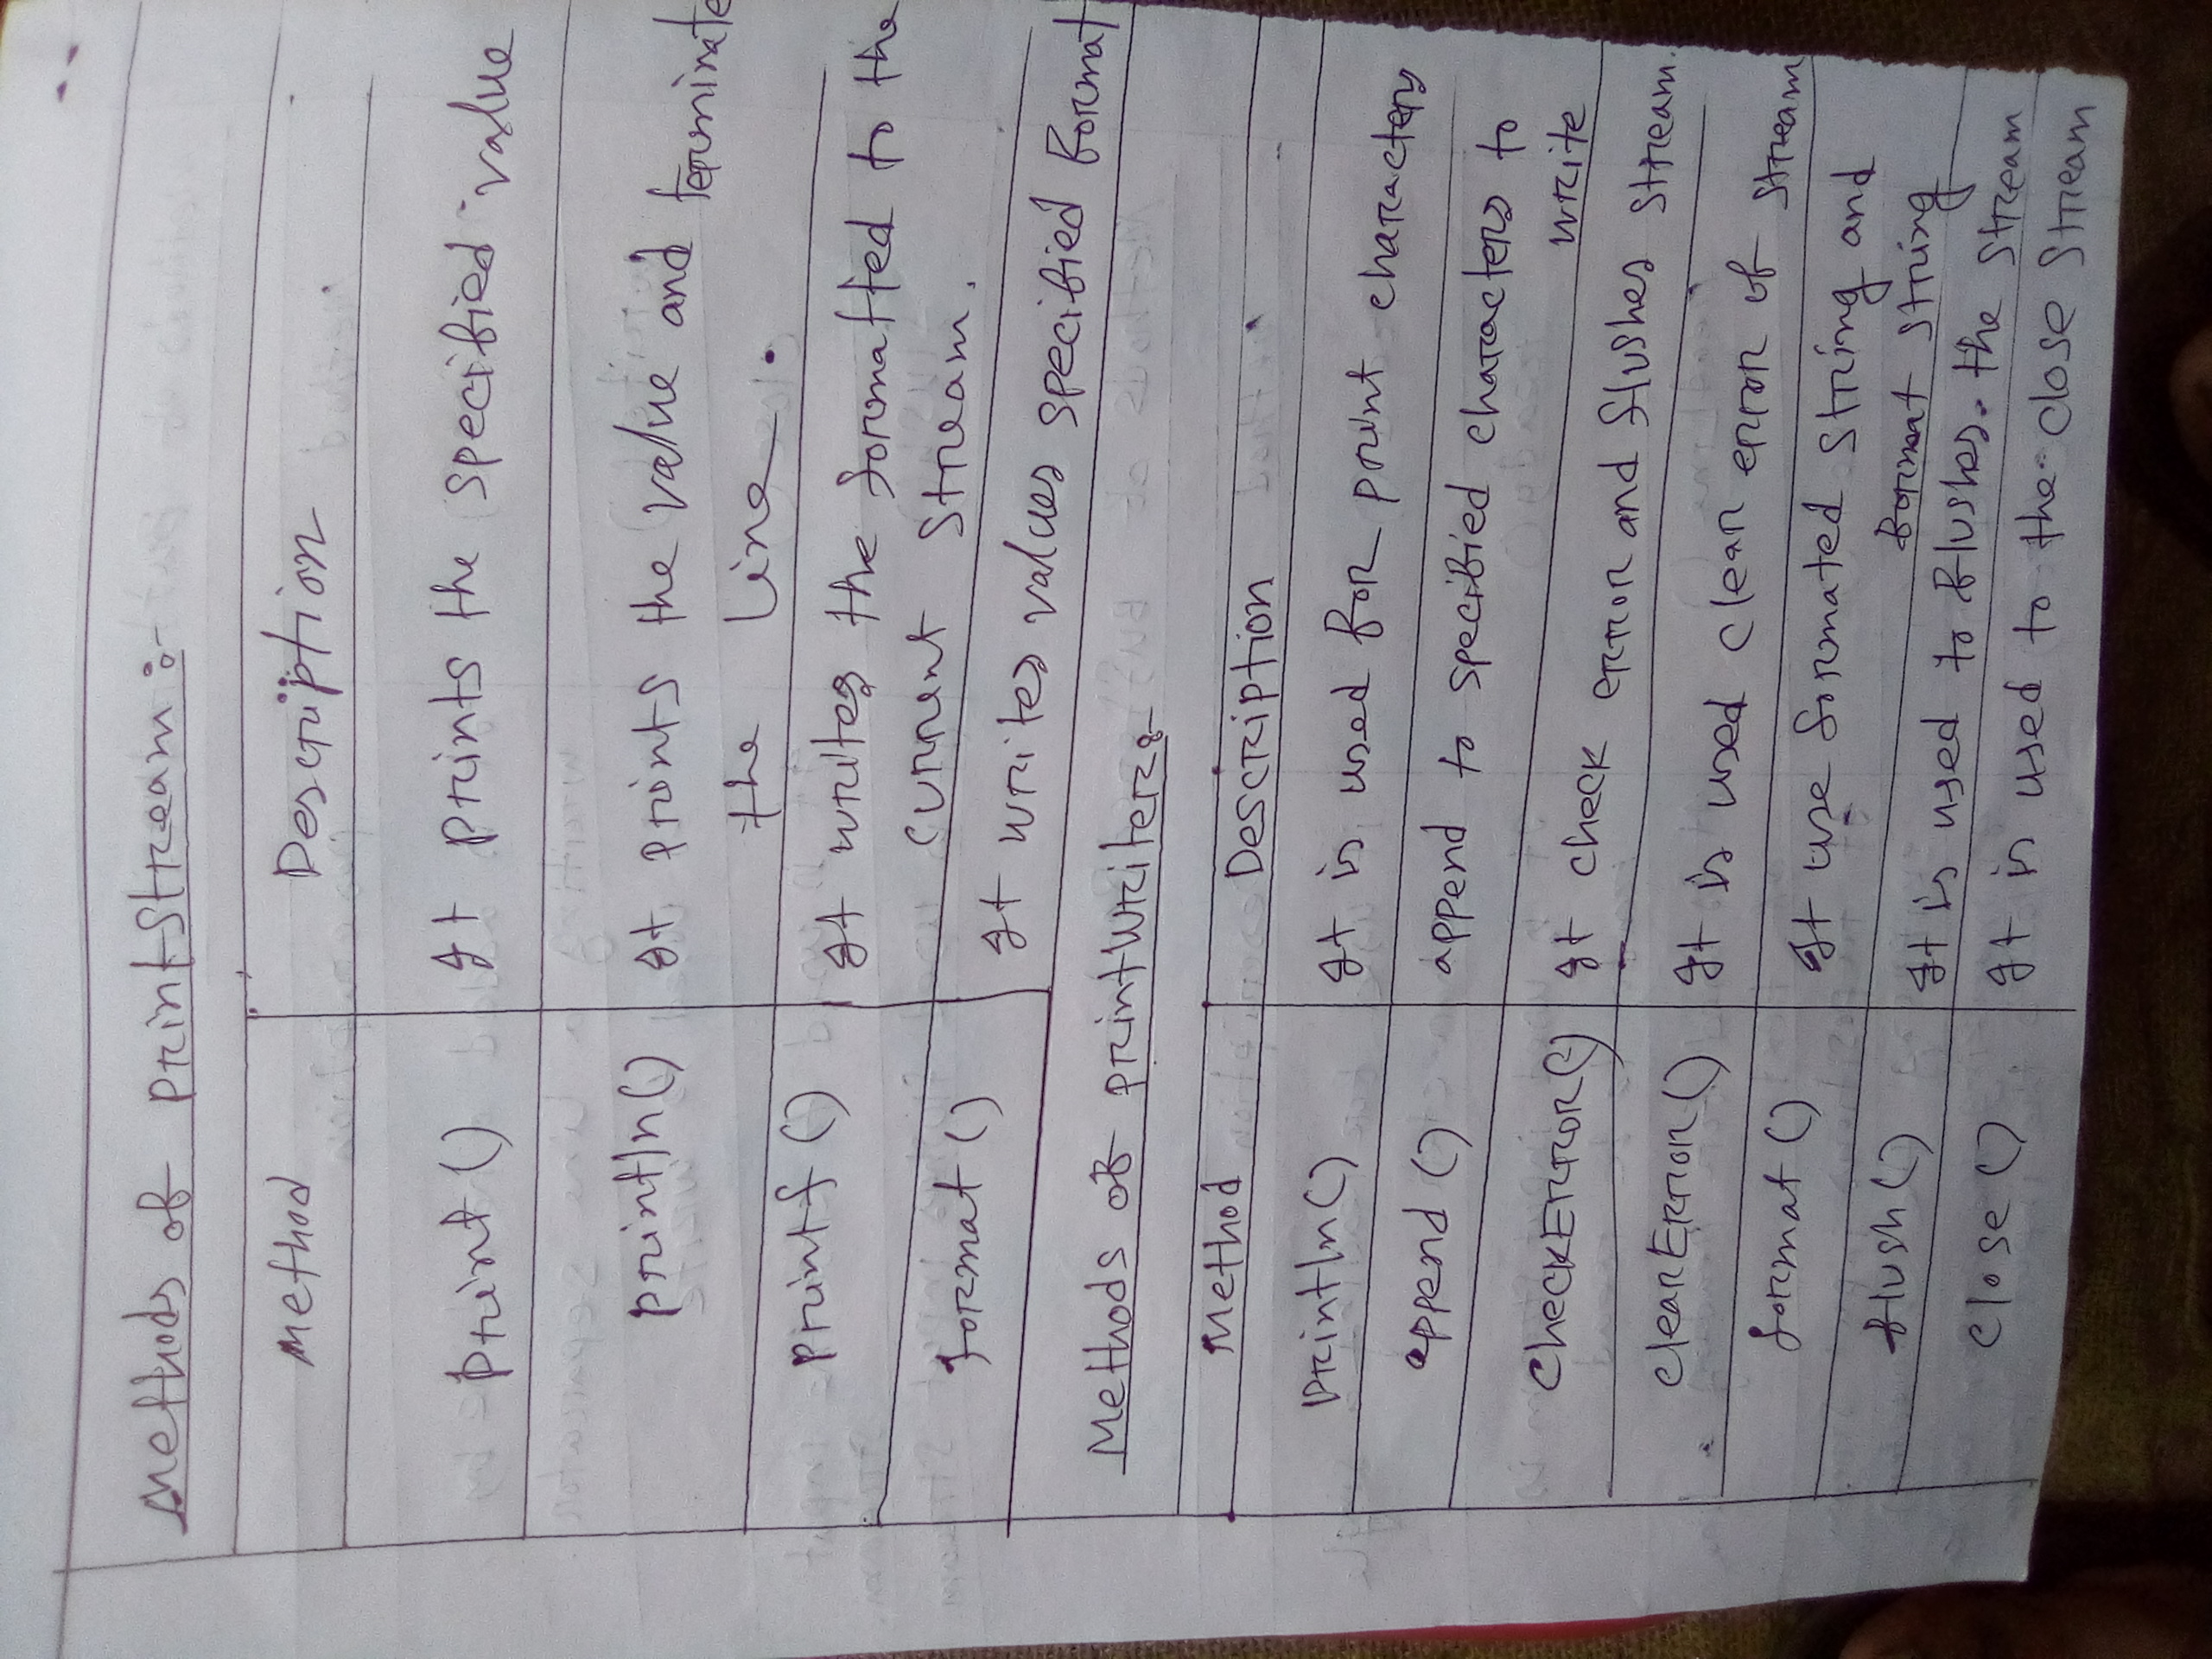 Methods of printStream :-
Method Description
print () It prints the specified value
println() It prints the value and terminate
the line .
printf () It writes the formatted to the
current stream.
format () It writes values specified format
Methods of printWriter :-
Method Description
println() It is used for print characters
append () append to specified characters to
write
CheckError() It check error and flushes stream.
clearError() It is used clear error of stream
format () It use formated string and
format string
flush () It is used to flushes. the stream
close () It is used to the close stream